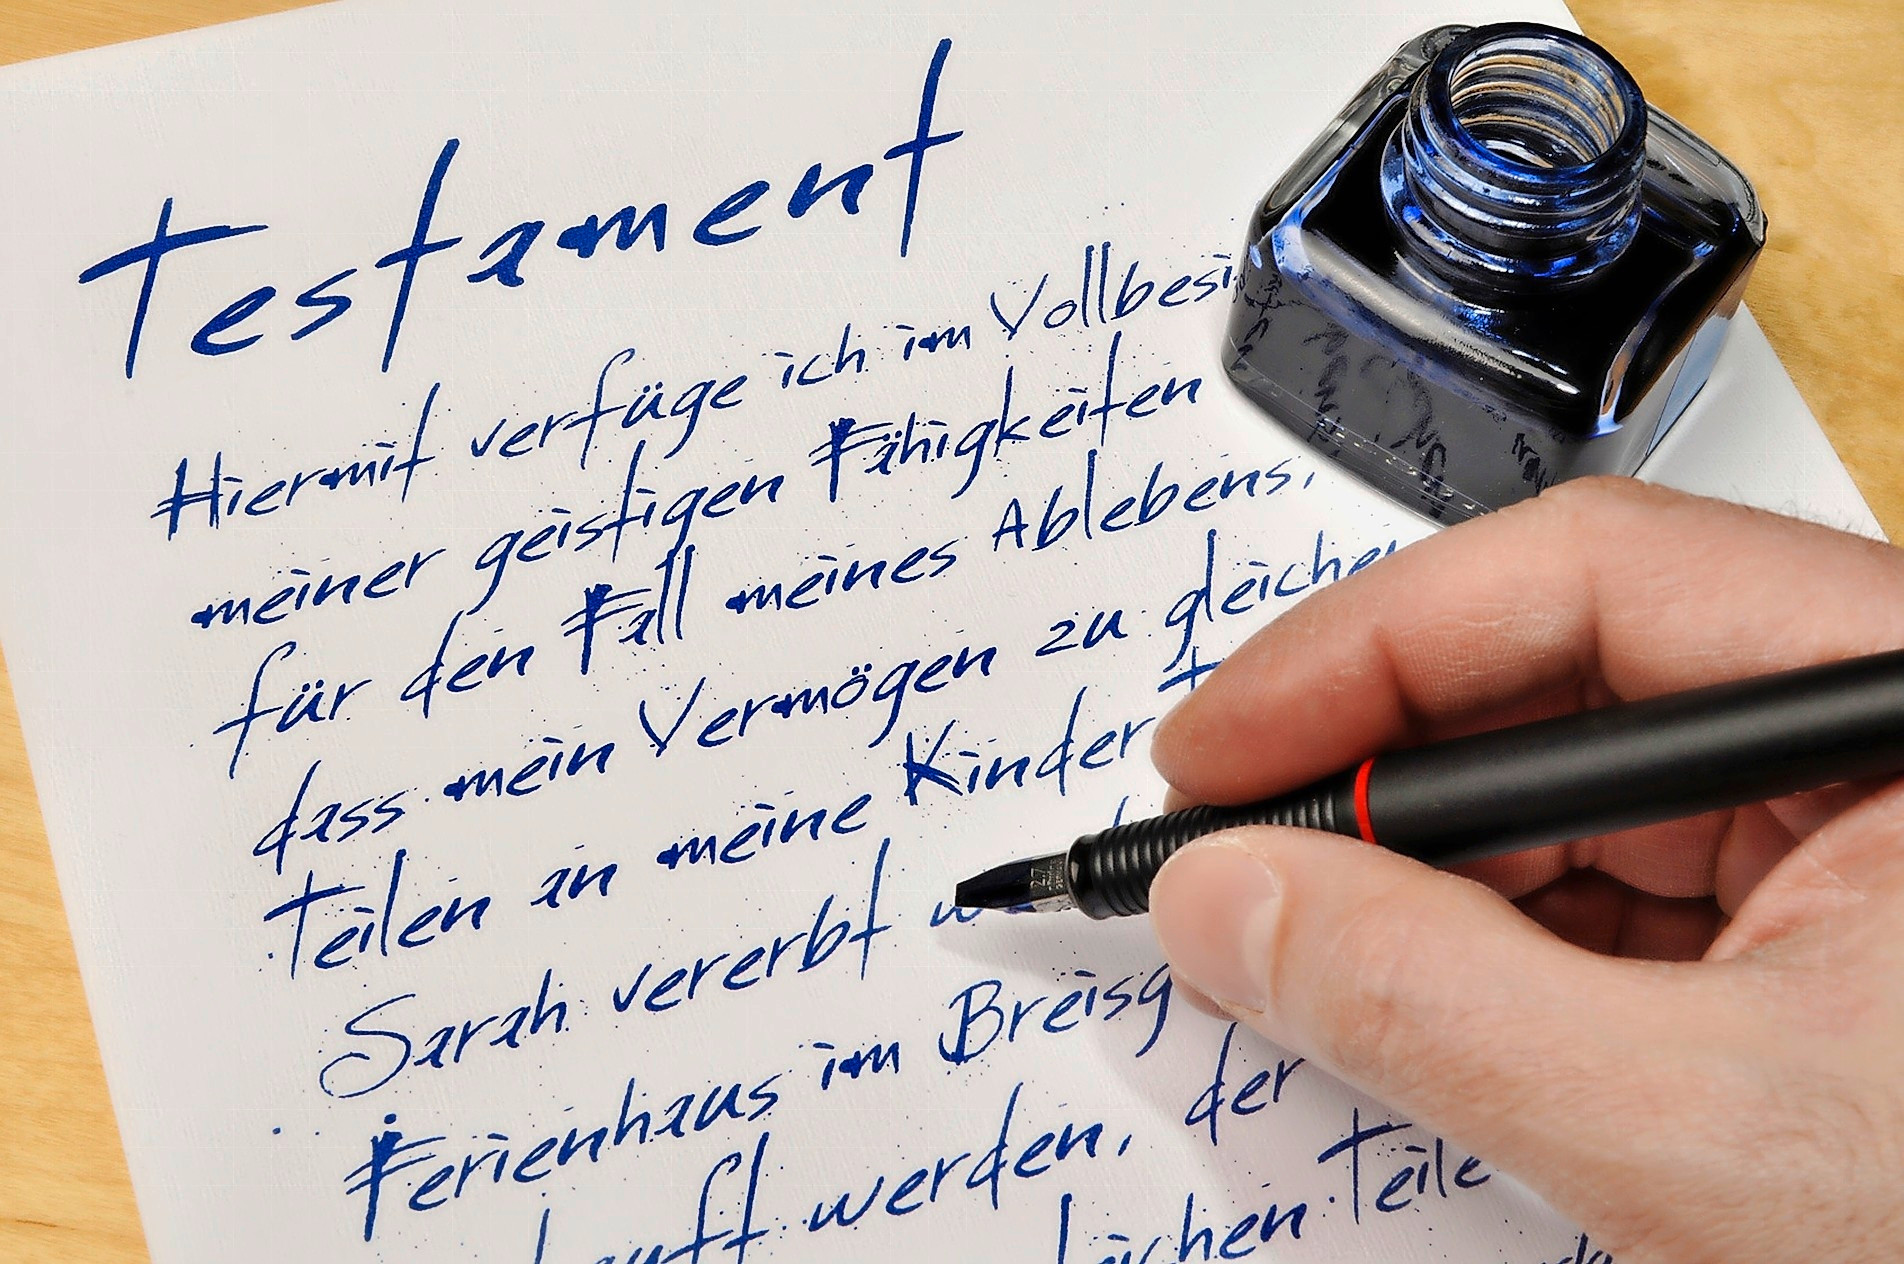 Testament
Hiermit verfüge ich im Vollbesi
meiner geistigen Fähigkeiten
für den Fall meines Ablebens,
dass mein Vermögen zu gleichen
Teilen an meine Kinder T
Sarah vererbt w
Ferienhaus im Breisg
werden, der
Teile